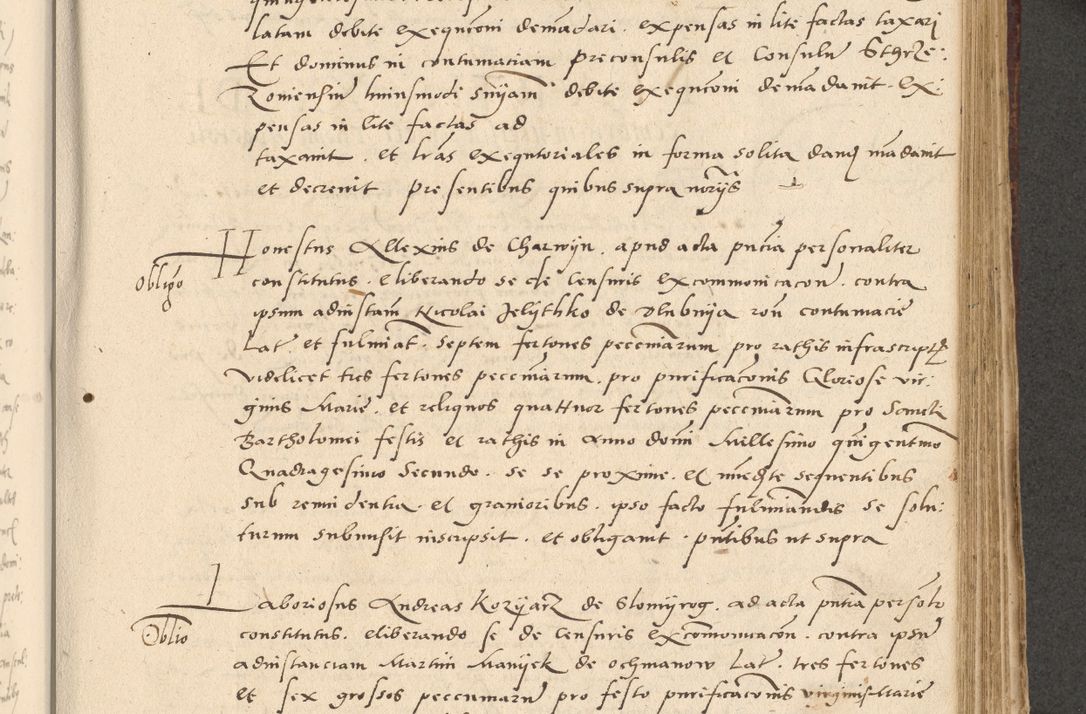 latam debite exequcioni demandari. expensas in lite factas taxari
Et dominus in contumatiam preconsulis et Consulum Strze:
Zomiensium huiusmodi sniam debite exequcioni demandauit. Ex:
pensas in lite factas ad
taxauit. et lras exequtoriales in forma solita dandj mandauit
et decreuit presentibus quibus supra notarijs
Honestus Allexius de Charwijn. apud acta pncia personaliter
Obligo
constitutus. eliberando se de Censuris excommonicacon. contra
ipsum adinstam Nicolai Jelijthko de Dlubnija ron contumacie
Lat. et fulminat. septem fertones pecuniarum pro rathis infrascript
videlicet tres fertones pecuniarum. pro purificaconis Gloriose vir:
ginis Marie. et reliquos quattuor fertones pecuniarum pro Sancti
Bartholomei festis et rathis in Anno domi Millesimo quigentmo
Quadragesimo Secundo. se se proxime. et imedte sequentibus
sub remi dentia et grauioribus. ipso facto fulminandis se solu:
turum submisit inscripsit. et obligauit. pntibus ut supra
Laboriosus Andreas Kozijarz de Slomijrog. ad acta pntia personlr
Oblio
constitutus. eliberando se de Censuris excomonicacon. contra ipsum
adinstanciam Martini Manijek de ochmanow Lat. tres fertones
et sex grossos peccuniarum pro festo purificaconis virginis Marie